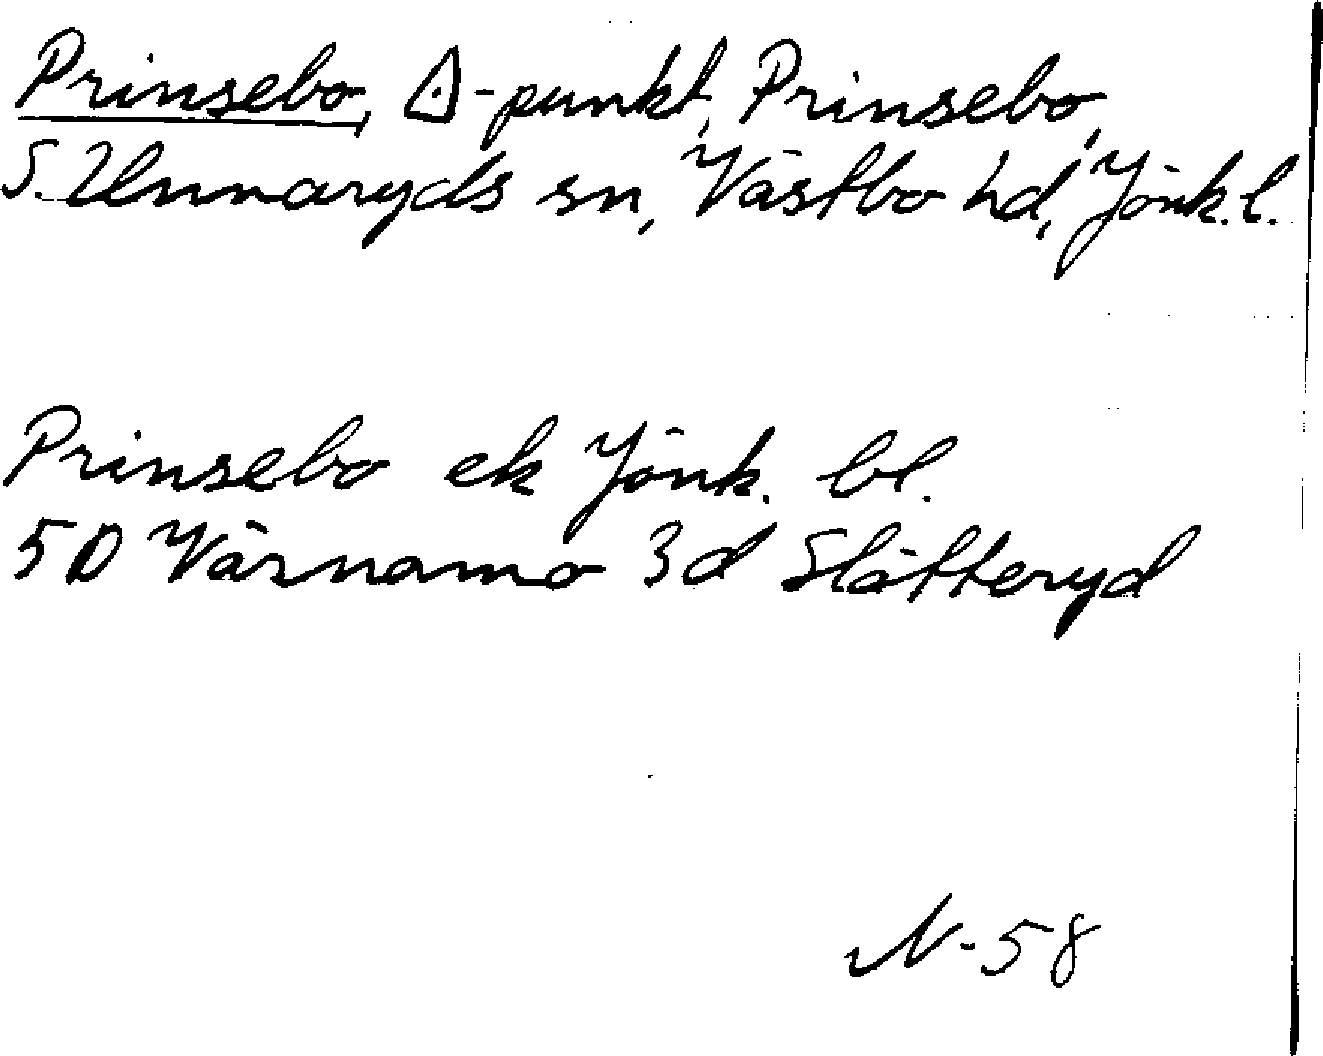 Prinsebo, △-punkt, Prinsebo,
S. Unnaryds sn, Västbo hd, Jönk. l.
Prinsebo ek Jönk. bl.
5D Värnamo 3d Slätteryd
N-58